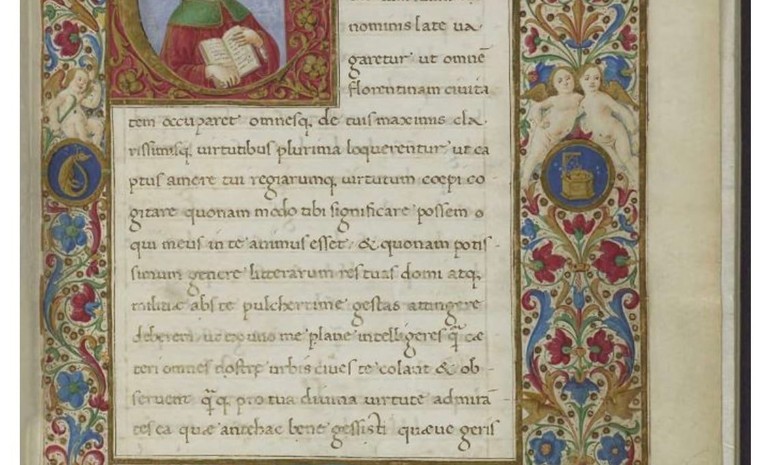 nominis late ua
garetur ut omnē
florentinam ciuita
tem occuparet omnesq, de tuis maximis cla
rissimisq, uirtutibus plurima loquerentur ut ca
ptus amore tui regiarumq, uirtutum coepi co
gitare quonam modo tibi significare possem o
qui meus in te animus esset, & quonam potis
simum genere litterarum res tuas domi atq,
militiæ abs te pulcherrime gestas attingere
deberem ut me plane intelligeres q̃ cæ
teri omnes nostre urbis ciues te colant & ob
seruent q̃q, pro tua diuina uirtute admirā
tes ea quæ antehac bene gessisti quæue geris